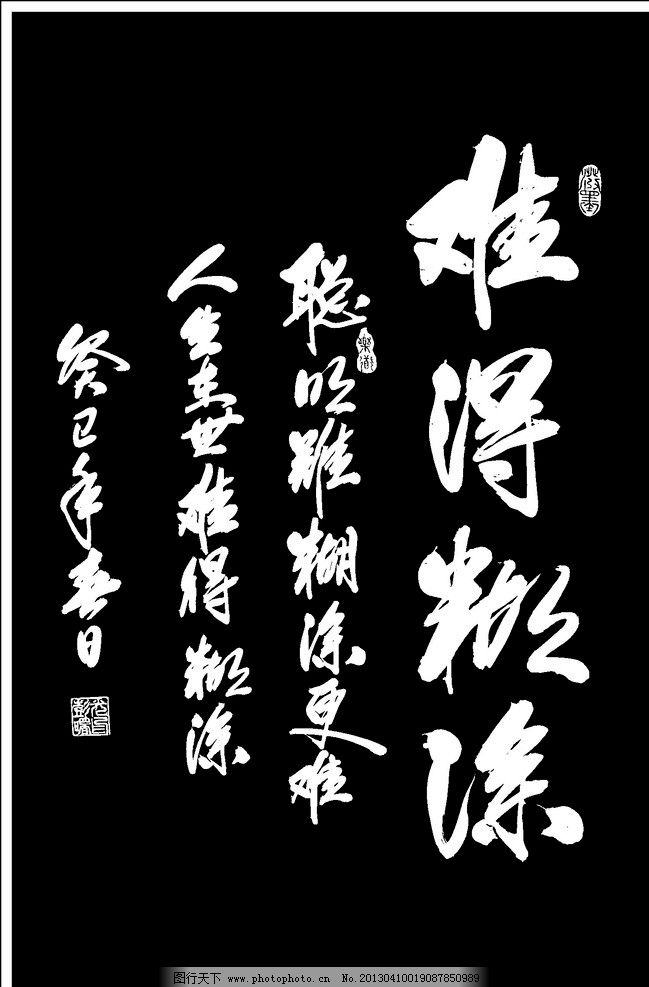 难得糊涂
聪明难糊涂更难
人生在世难得糊涂
癸巳年春日
乐道
图行天下 www.photophoto.cn No.20130410019087850989